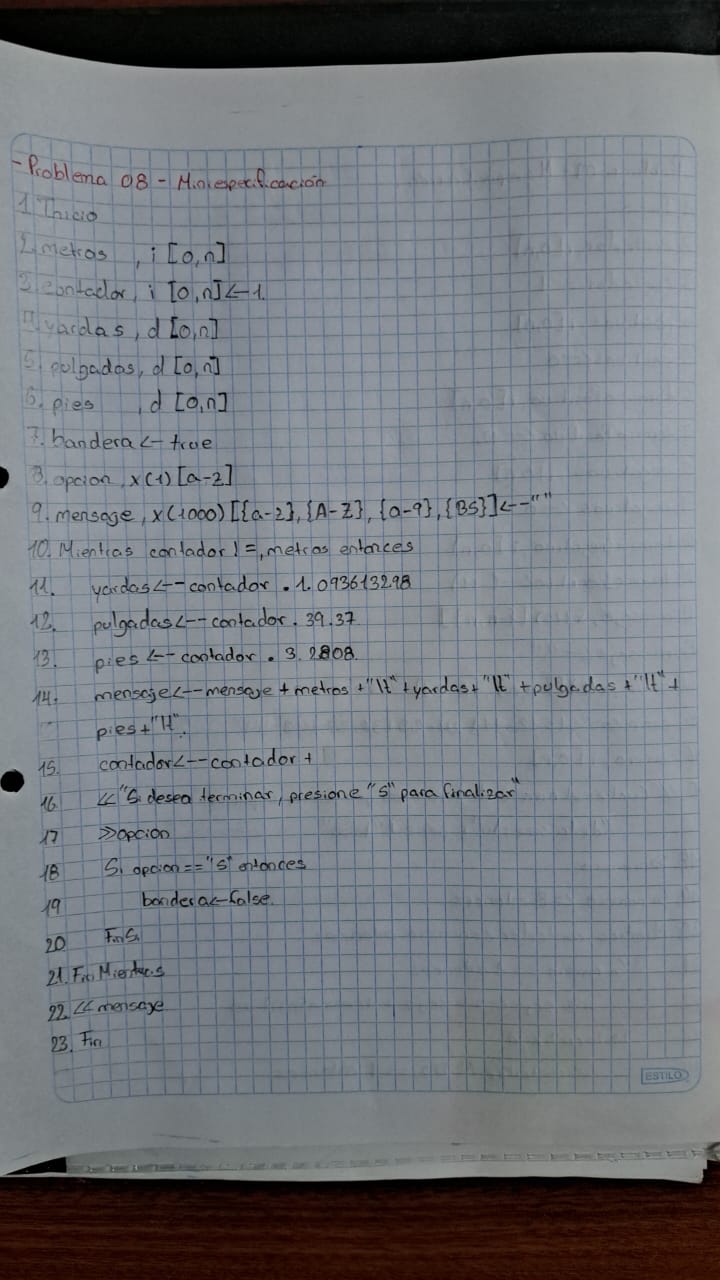 - Problema 08 - Miniespecificación
1. Inicio
2. metros , i [0,n]
3. contador, i [0,n]<-1.
4. yardas, d [0,n]
5. pulgadas, d [0,n]
6. pies , d [0,n]
7. bandera <- true
8. opcion, x(1) [a-z]
9. mensage, x(1000) [{a-z}, {A-Z}, {0-9}, {BS}]<--""
10. Mientras contador != , metros entonces
11. yardas<--contador . 1.093613298
12. pulgadas<--contador . 39.37
13. pies <--contador . 3.2808
14. mensaje<--mensaje + metros +"\t"+yardas+"\t" +pulgadas +"\t"+
pies+"\t".
15. contador<--contador +
16 << "Si desea terminar, presione "S" para finalizar"
17 >>opcion
18 Si opcion=="S" entonces
19 bandera<-false.
20 FinSi
21. Fin Mientras
22. << mensage
23. Fin
ESTILO